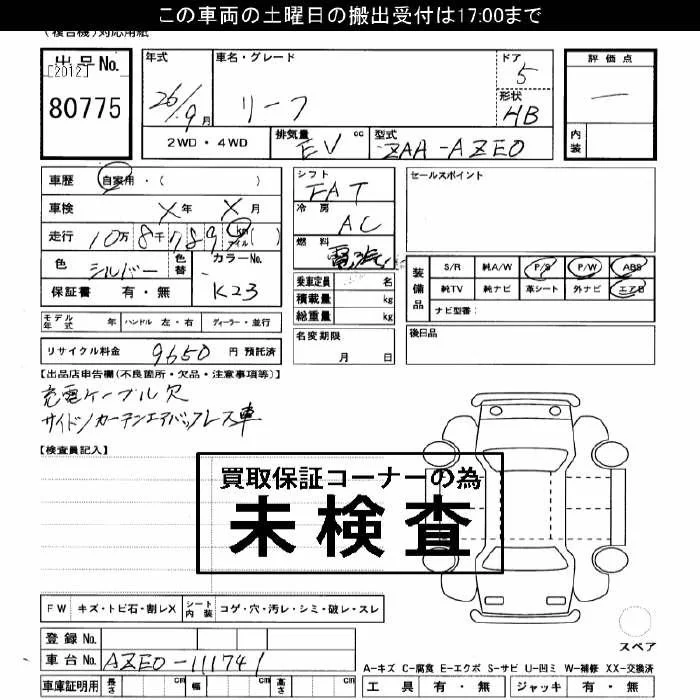 この車両の土曜日の搬出受付は17:00まで
(複合機)対応用紙
出品No.
[2012]
80775
年式 26/9月
車名・グレード
リーフ
ドア 5
形状 HB
評価点
ー
内装
2WD・4WD
排気量 EV cc
型式 ZAA-AZE0
車歴 自家用・( )
車検 X年 X月
走行 10万 8千 789 km マイル( )
色 シルバー
色替
カラーNo.
K23
保証書 有・無
シフト
FAT
冷房
AC
燃料
電気
乗車定員 名
積載量 kg
総重量 kg
セールスポイント
装備品
S/R 純A/W P/S P/W ABS
純TV 純ナビ 革シート 外ナビ エアB
ナビ型番:
モデル年式 年 ハンドル 左・右 ディーラー・並行
名変期限
月 日
後日品
リサイクル料金 9650 円 預託済
【出品店申告欄(不良箇所・欠品・注意事項等)】
充電ケーブル欠
サイド/カーテンエアバックレス車
【検査員記入】
買取保証コーナーの為
未検査
FW キズ・トビ石・割レX
シート内装 コゲ・穴・汚レ・シミ・破レ・スレ
スペア
登録No.
車台No. AZE0-111741
A-キズ C-腐食 E-エクボ S-サビ U-凹ミ W-補修 XX-交換済
車庫証明用 長さ cm 幅 cm 高さ cm
工具 有・無 ジャッキ 有・無